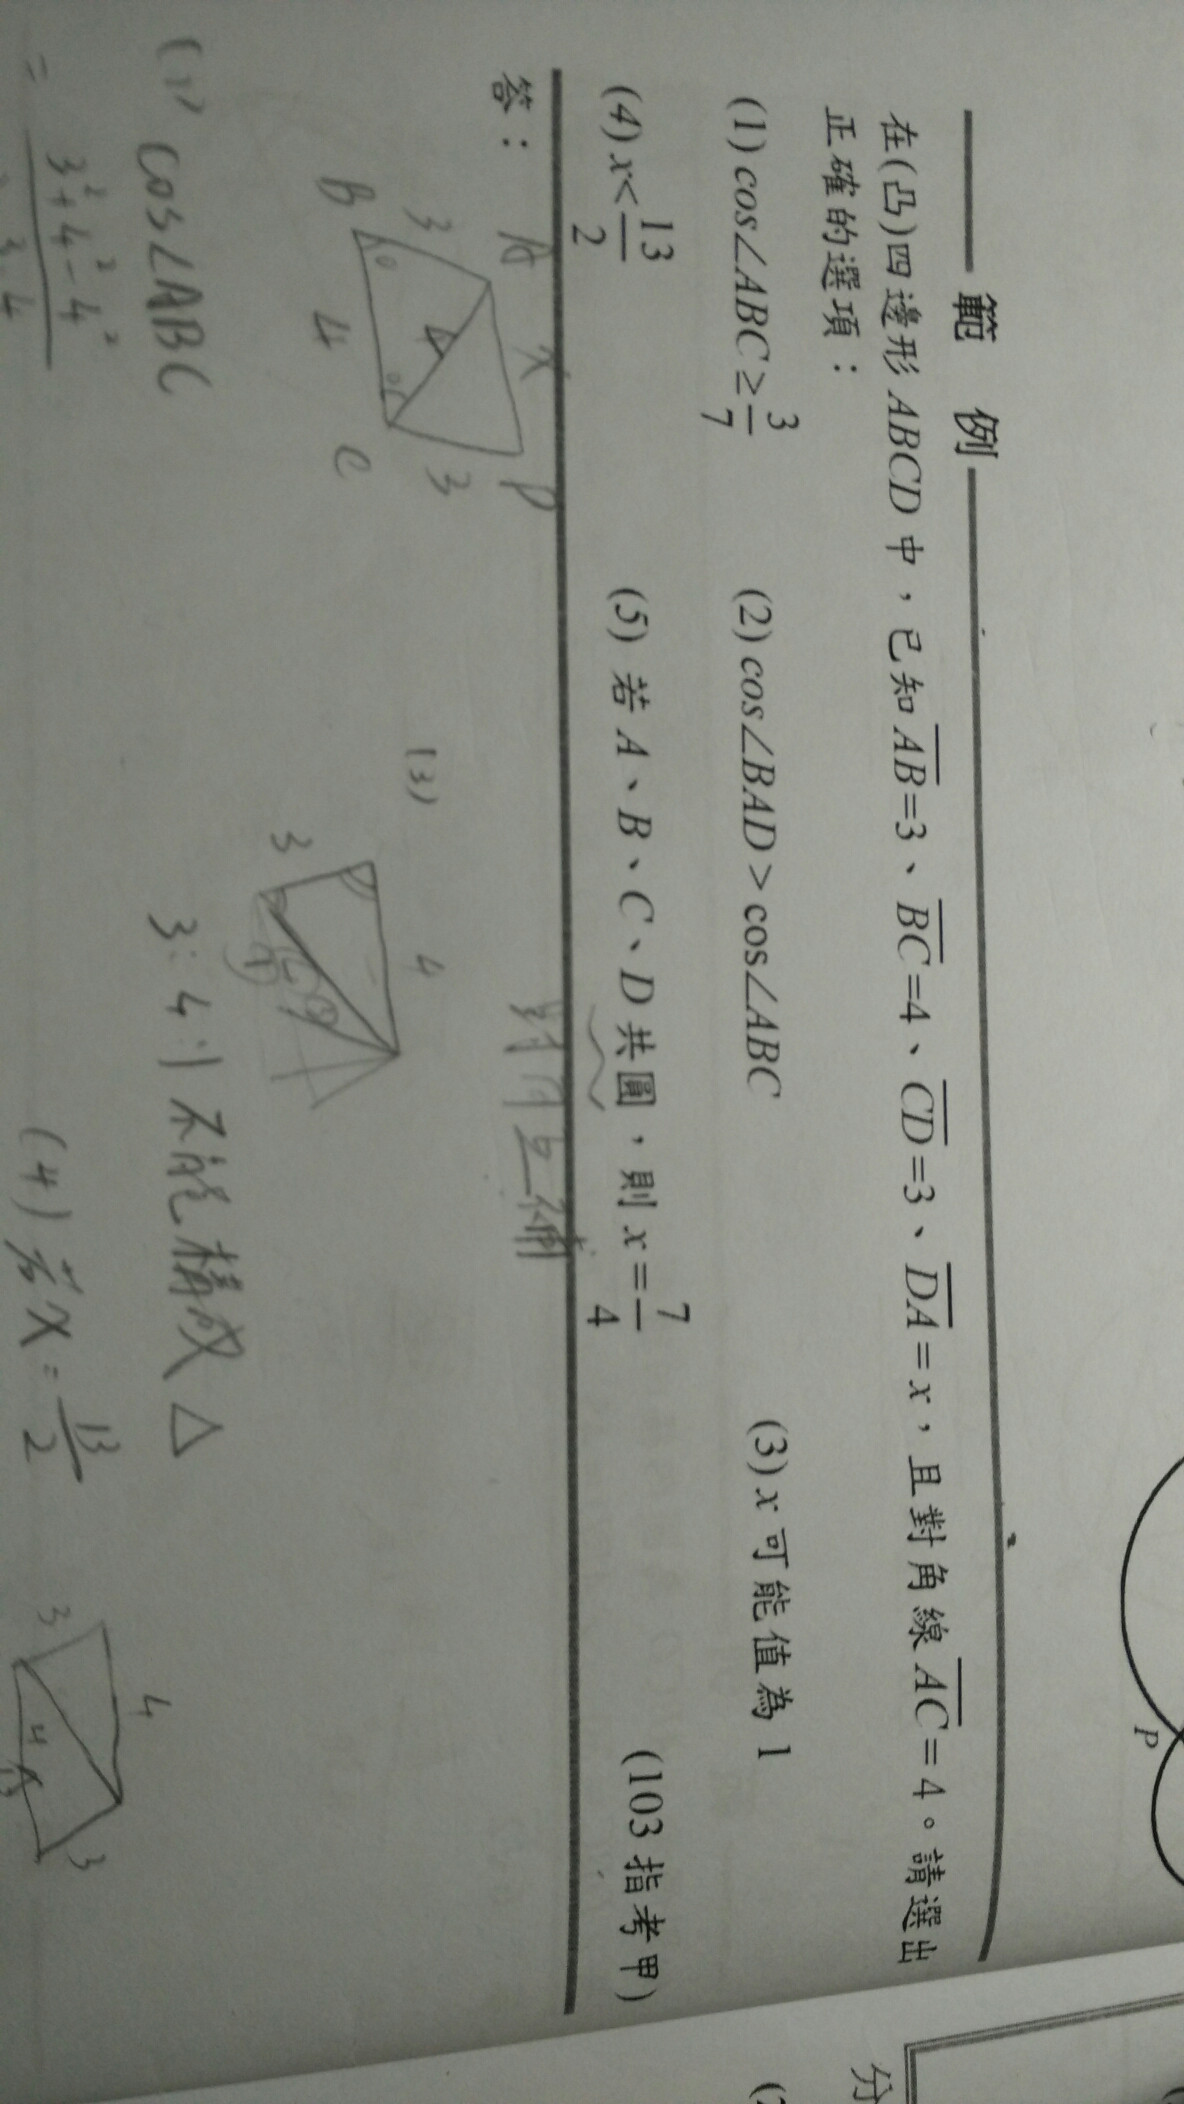 範 例
在(凸)四邊形 ABCD 中，已知 AB=3、BC=4、CD=3、DA=x，且對角線 AC=4。請選出
正確的選項：
(1) cos∠ABC ≥ 3/7 (2) cos∠BAD > cos∠ABC (3) x 可能值為 1
(4) x < 13/2 (5) 若 A、B、C、D 共圓，則 x = 7/4 (103 指考甲)
答：
對角互補
A x D
3 4 3
B 4 C
(3)
4
3
(1) cos∠ABC
= 3²+4²-4²
3:4:1 不能構成△
(4) 若 x = 13/2
4
3 4 3
P
分